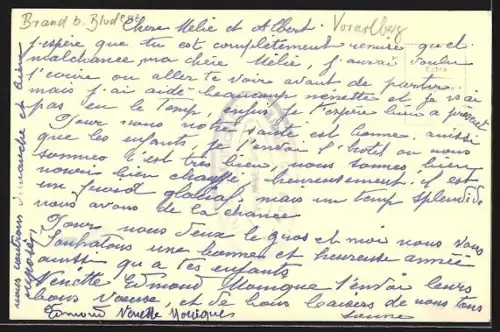 Brand b. Bludesz Vorarlberg
Chere Mélie et Albert.
j'espère que tu est complètement remise quel
malchance ma chère Mélie, j'aurai voulu
t'écrire ou aller te voir avant de partir
mais j'ai aidé beaucoup nénette et je n'ai
pas eu le temp, enfin je t'espère bien a présent
Pour nous notre santé est bonne. aussi
que les enfants, je t'envoi l'hotel ou nous
sommes c'est très bien, nous somes bien
nourri bien chauffé, heureusement il est
un froid glacial, mais un temp splendide
nous avons de la chance
Pour nous deux le gros et moi nous vous
Souhaitons une bonne et heureuse année
ainsi qu a tes enfants
Nénette Edmond Monique t'envoi leurs
bons Voeux, et de bons baisers de nous tous
Edmond Nénette Monique
nous rentrons dimanche et bien
reposés